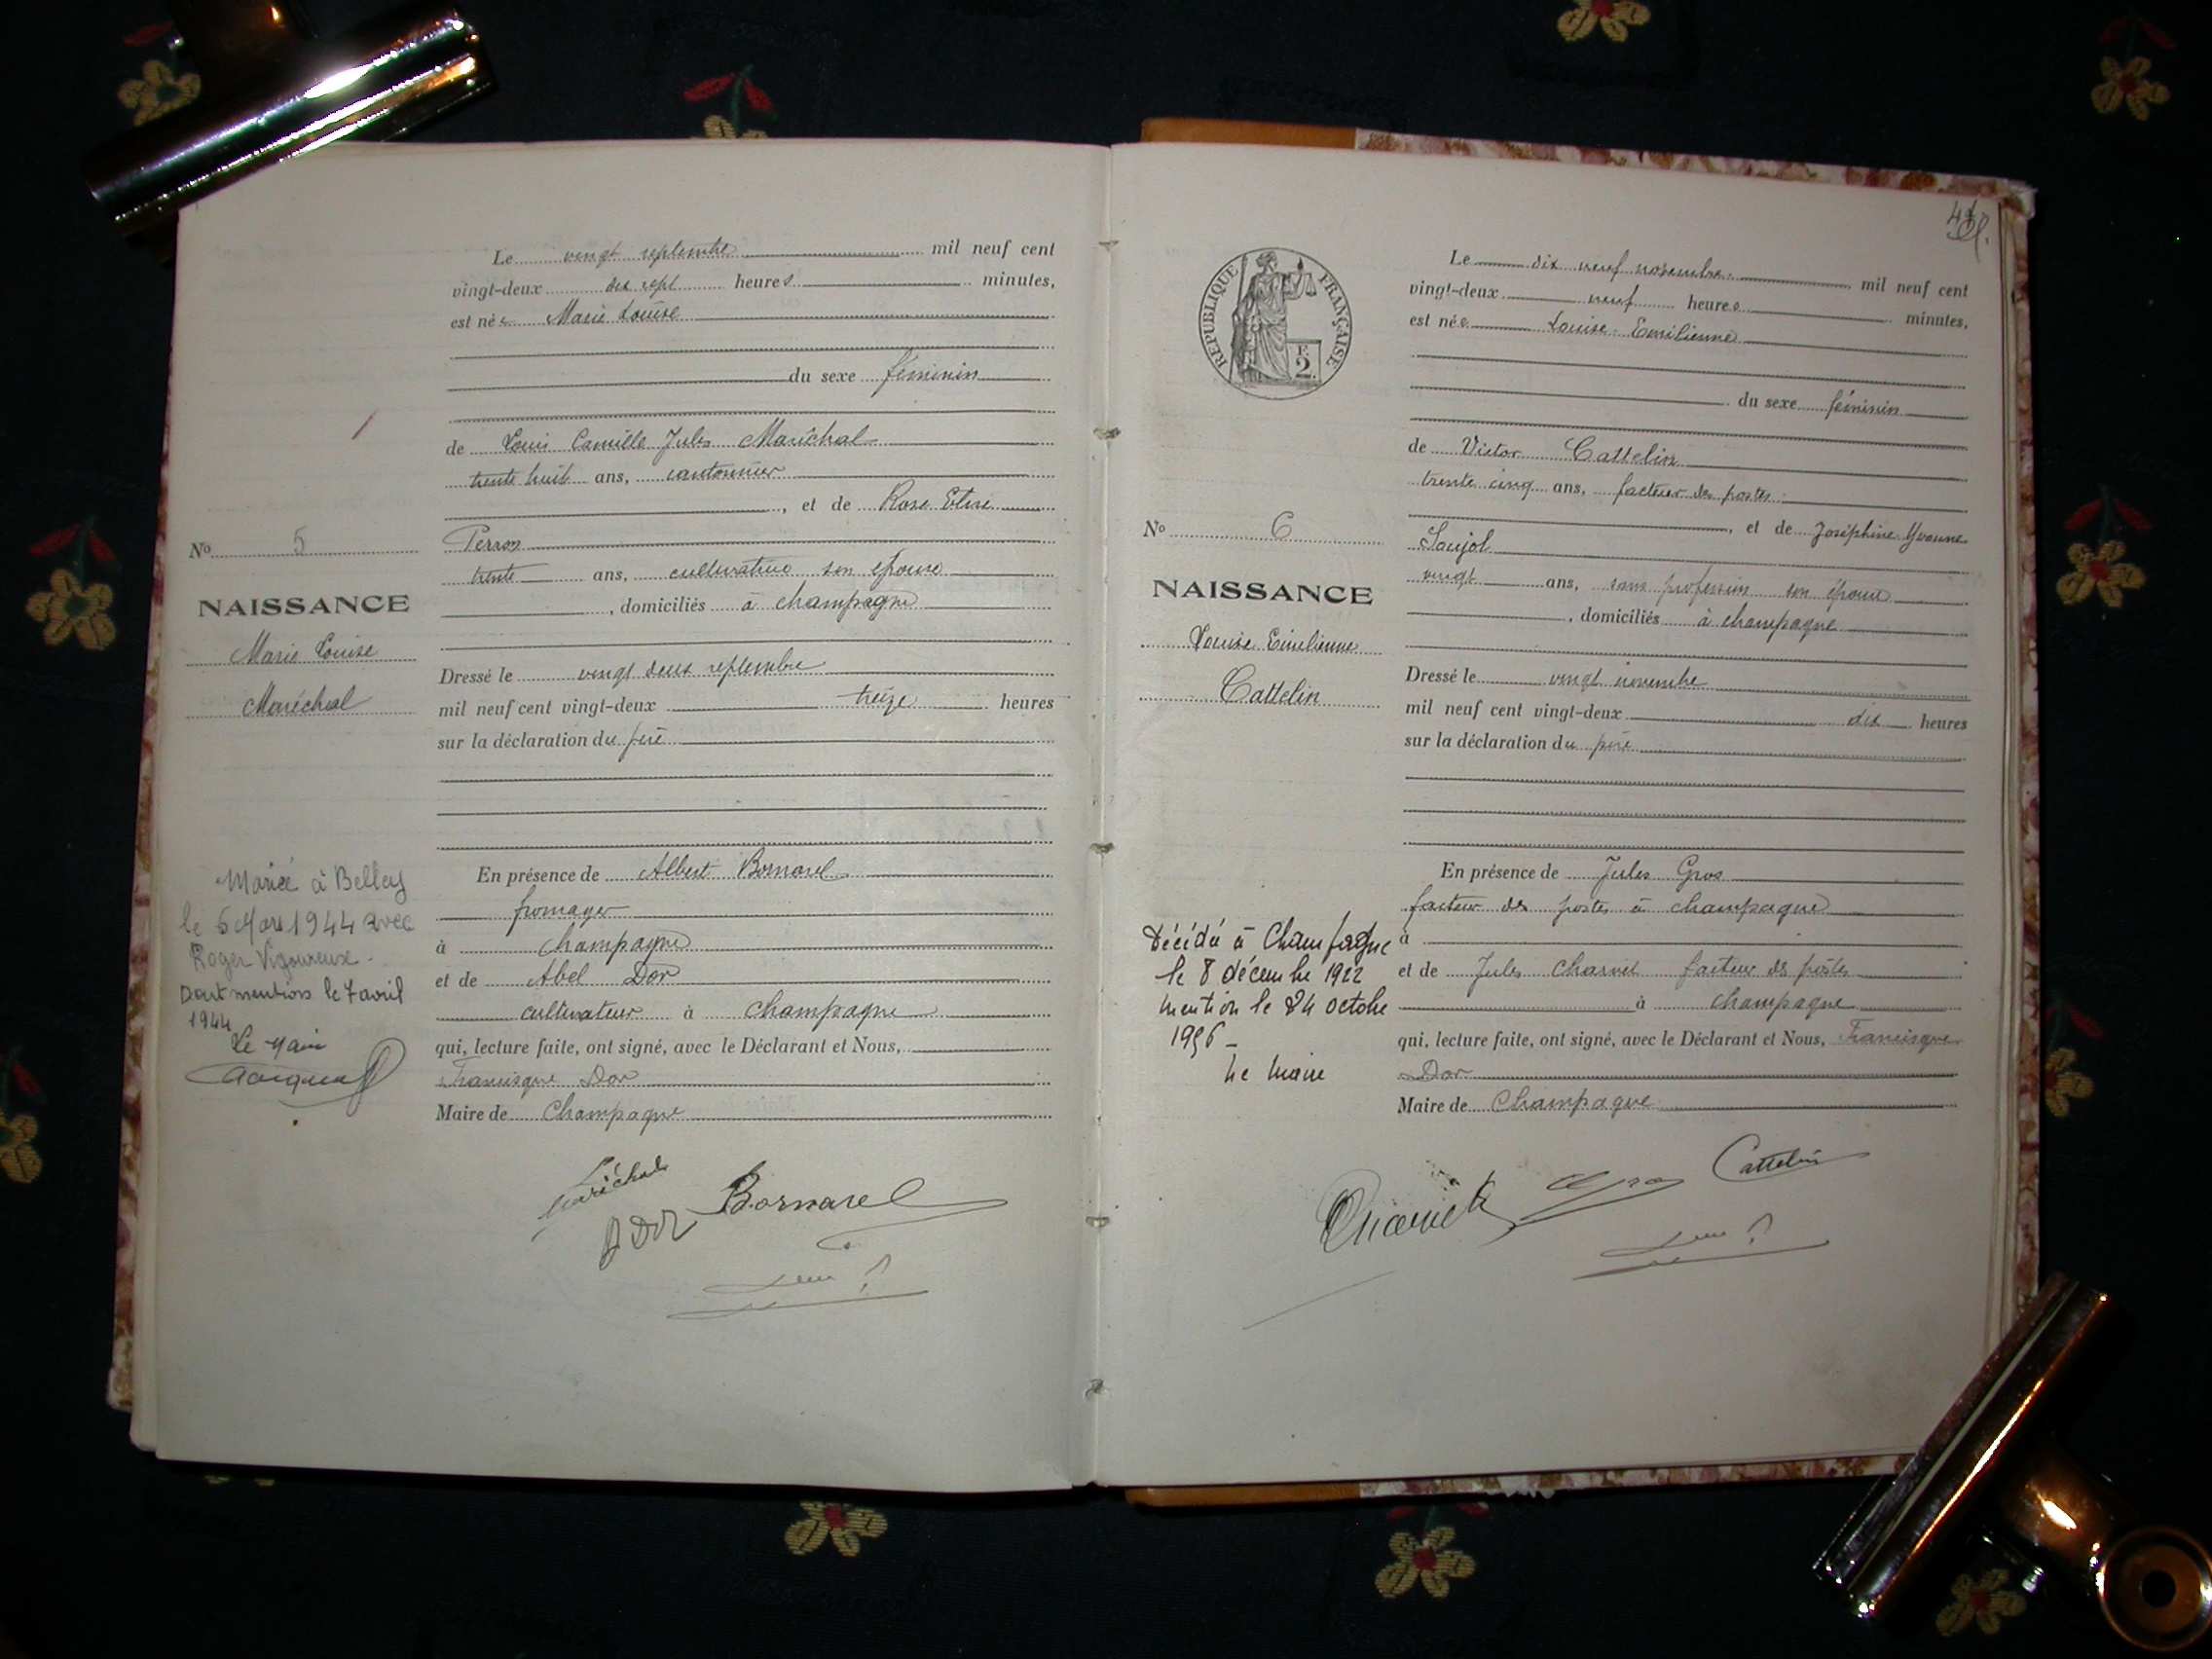 Le vingt septembre mil neuf cent
vingt-deux dix sept heures minutes,
est née Marie Louise
du sexe féminin
de Louis Camille Jules Maréchal
trente huit ans, cantonnier
, et de Rose Elise
Perron
trente ans, cultivatrice son épouse
, domiciliés à Champagne
Dressé le vingt deux septembre
mil neuf cent vingt-deux treize heures
sur la déclaration du père
En présence de Albert Bornarel
fromager
à Champagne
et de Abel Dor
cultivateur à Champagne
qui, lecture faite, ont signé, avec le Déclarant et Nous,
Francisque Dor
Maire de Champagne
No 5
NAISSANCE
Marie Louise
Maréchal
Mariée à Belley
le 6 Mars 1944 avec
Roger Vigoureux.
Dont mention le 7 avril
1944
Le Maire
Maréchal
A Dor
Bornarel
REPUBLIQUE FRANÇAISE
F.
2
Le dix neuf novembre mil neuf cent
vingt-deux neuf heures minutes,
est née Louise Emilienne
du sexe féminin
de Victor Cattelin
trente cinq ans, facteur des postes
, et de Joséphine Yvonne
Soujol
vingt ans, sans profession son épouse
, domiciliés à Champagne
Dressé le vingt novembre
mil neuf cent vingt-deux dix heures
sur la déclaration du père
En présence de Jules Gros
facteur des postes à Champagne
à
et de Jules Charvet facteur des postes
à Champagne
qui, lecture faite, ont signé, avec le Déclarant et Nous, Francisque
Dor
Maire de Champagne
No 6
NAISSANCE
Louise Emilienne
Cattelin
Décédée à Champagne
le 8 décembre 1922
mention le 24 octobre
1956
Le Maire
Charvet
Gros
Cattelin